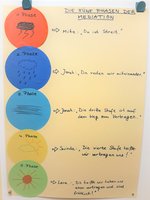 DIE FÜNF PHASEN DER
MEDIATION
1. Phase
→ Micha „Du ist Streit"
2. Phase
→ Jonah „Da reden wir miteinander"
3. Phase
→ Jonah „Die dritte Stufe ist auf
dem Weg zum Vertragen."
4. Phase
→ „Die vierte Stufe heißt
wir vertragen uns!"
5. Phase
→ Lara „Die heißt wir haben uns
wieder vertragen und sind